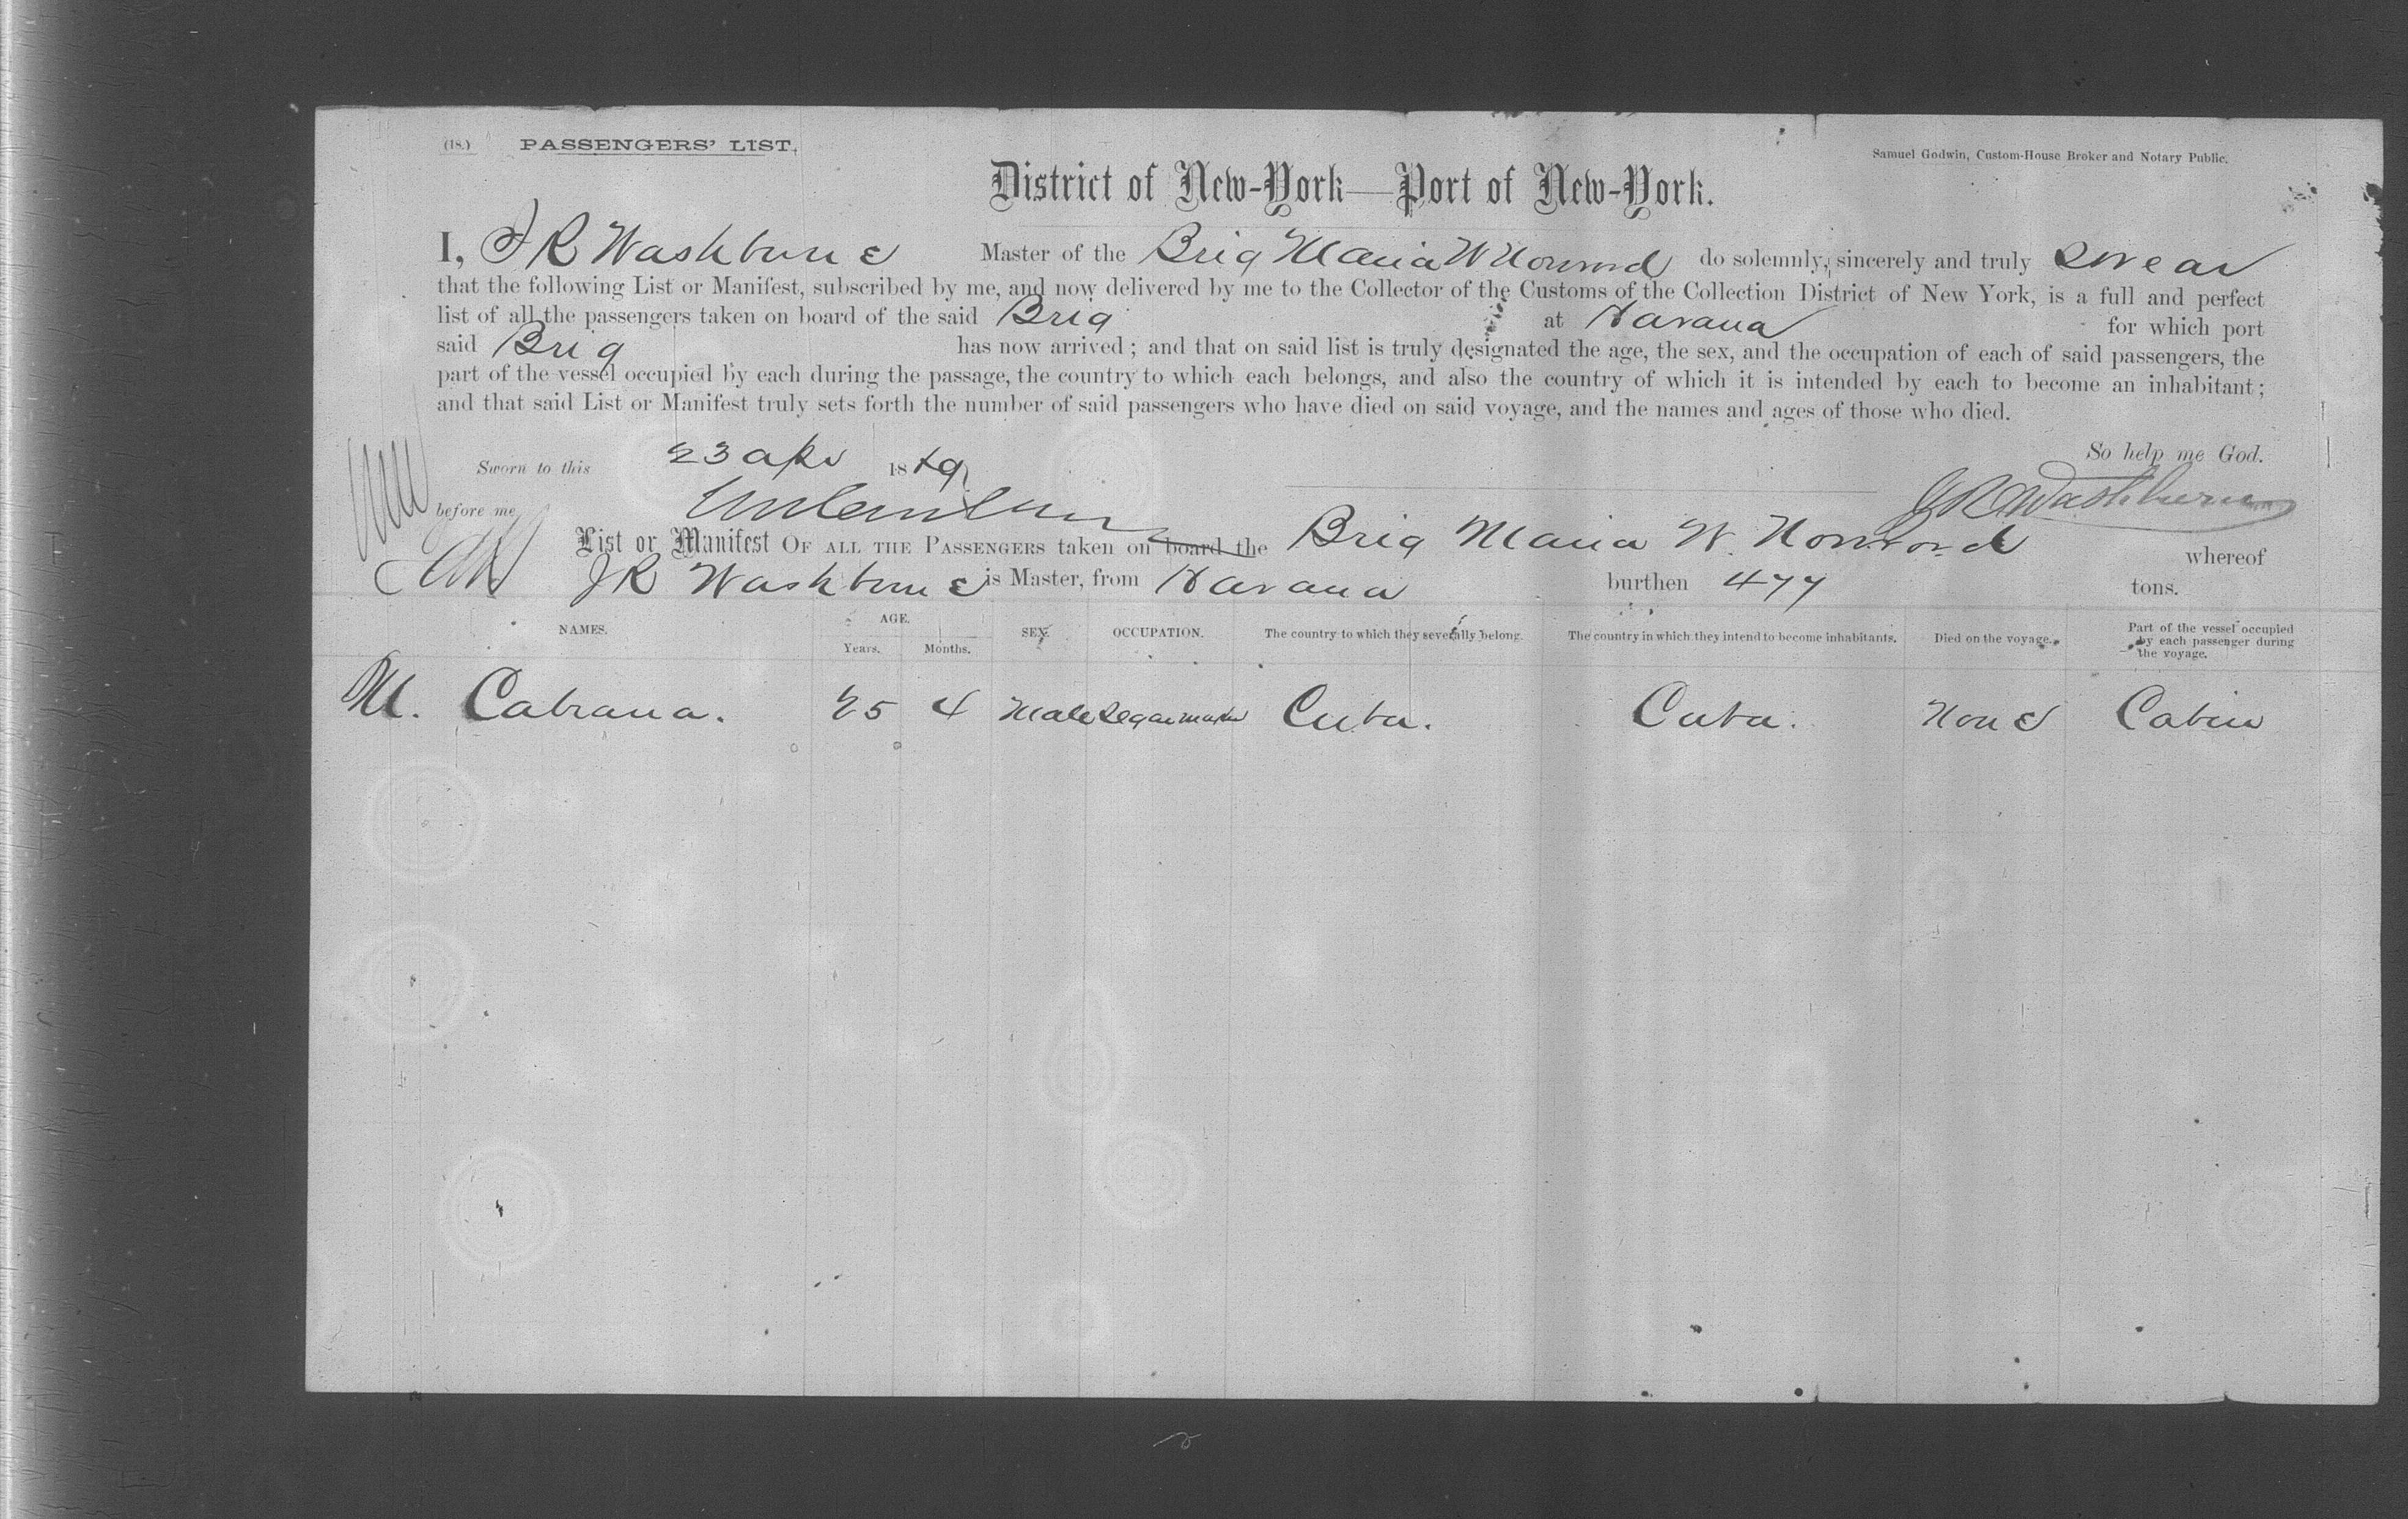 (18.) PASSENGERS' LIST.
Samuel Godwin, Custom-House Broker and Notary Public.
District of New-York—Port of New-York.
I, J R Washburne Master of the Brig Maria W Norwood do solemnly, sincerely and truly Swear
that the following List or Manifest, subscribed by me, and now delivered by me to the Collector of the Customs of the Collection District of New York, is a full and perfect
list of all the passengers taken on board of the said Brig at Havana for which port
said Brig has now arrived; and that on said list is truly designated the age, the sex, and the occupation of each of said passengers, the
part of the vessel occupied by each during the passage, the country to which each belongs, and also the country of which it is intended by each to become an inhabitant;
and that said List or Manifest truly sets forth the number of said passengers who have died on said voyage, and the names and ages of those who died.
So help me God.
Sworn to this 23 apr 1879
before me J R Washburne
List or Manifest OF ALL THE PASSENGERS taken on board the Brig Maria W. Norwood whereof
J R Washburne is Master, from Havana burthen 477 tons.
NAMES. AGE. Years. Months. SEX. OCCUPATION. The country to which they severally belong. The country in which they intend to become inhabitants. Died on the voyage. Part of the vessel occupied by each passenger during the voyage.
M. Cabrana. 25 4 Male Segarmaker Cuba. Cuba. None Cabin